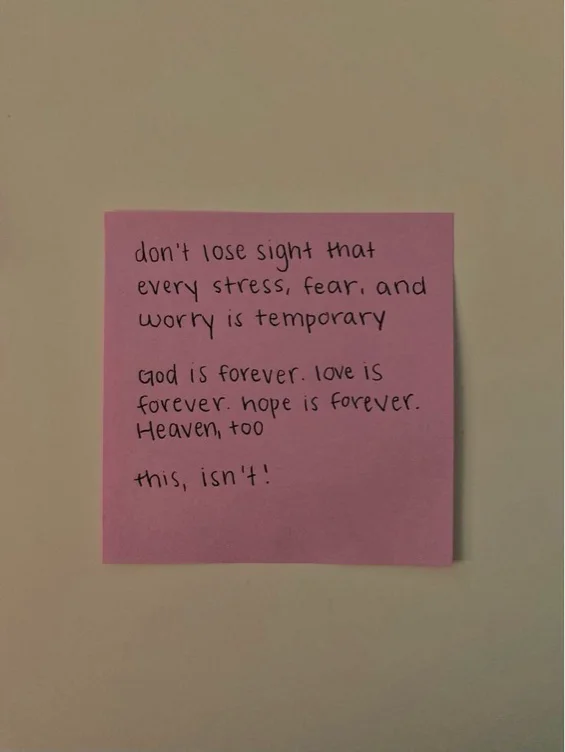 don't lose sight that
every stress, fear, and
worry is temporary
God is forever. love is
forever. hope is forever.
Heaven, too
this, isn't!